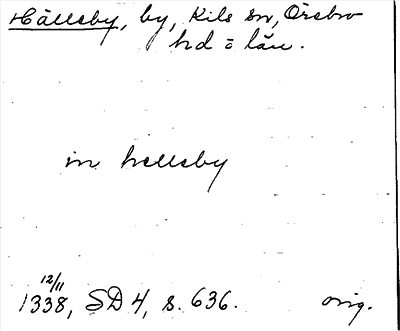 Hällsby, by, Kils sn, Örebro
hd = län.
in hellsby
12/11
1338, SD 4, s. 636. orig.